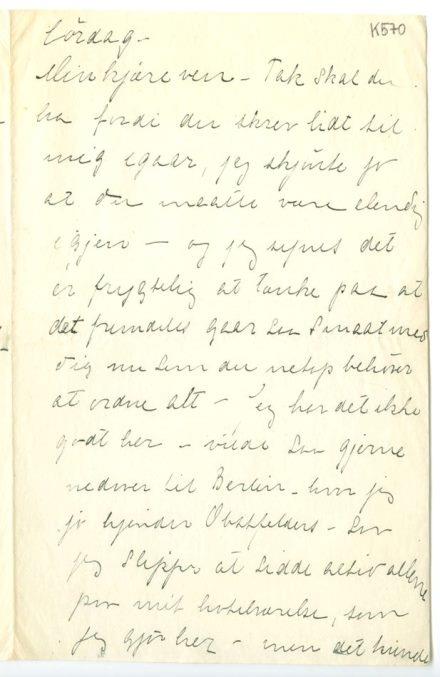 K570
Lördag –
Min kjære ven – Tak skal du
ha fordi du skrev lidt til
mig igaar, jeg skjönte jo
at du maatte være elendig
igjen – og jeg synes det
er frygtelig at tænke paa at
det fremdeles gaar saa smaat med
dig nu som du netop behöver
at ordne alt – Jeg har det ikke
godt her – vilde saa gjerne
nedover til Berlin – hvor jeg
jo kjender Obstfelders – saa
jeg slipper at sidde altid allene
paa mit hotelværelse, som
jeg gjör her – men det kunde